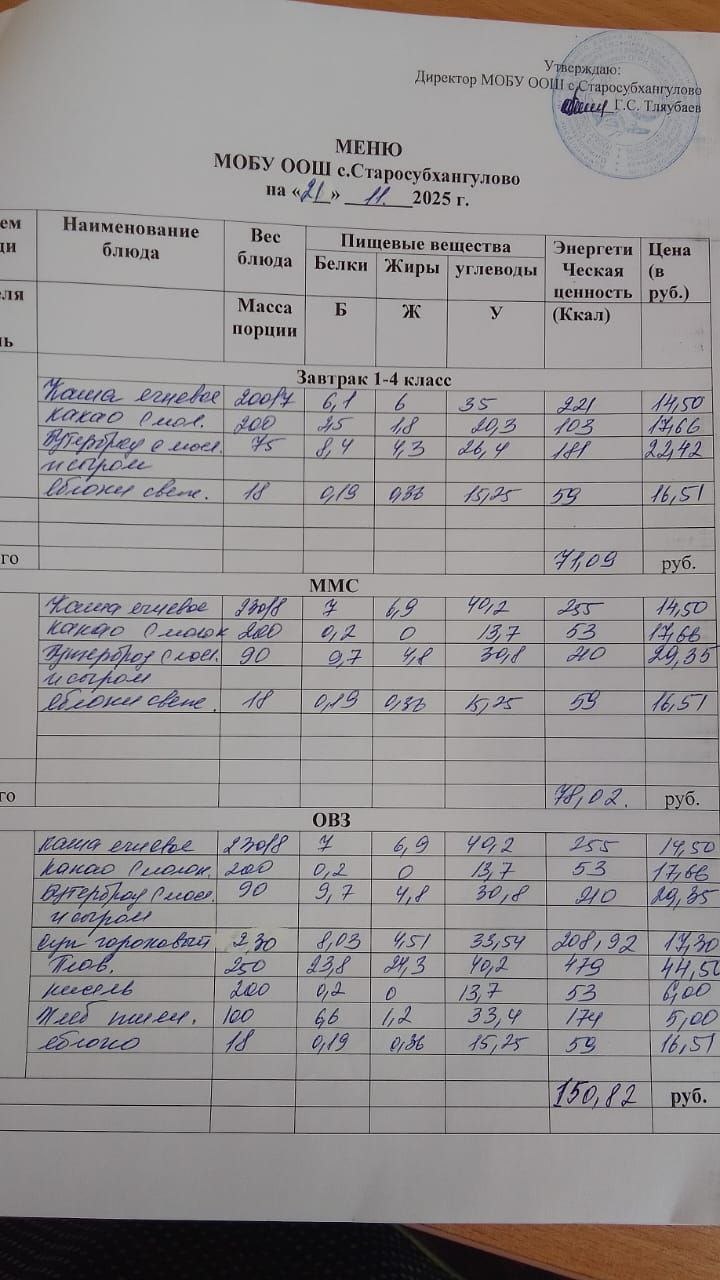 Утверждаю:
Директор МОБУ ООШ с.Старосубхангулово
Г.С. Тляубаев
МЕНЮ
МОБУ ООШ с.Старосубхангулово
на «21» 11. 2025 г.
Наименование блюда Вес блюда Пищевые вещества Энергети Ческая ценность Цена (в руб.)
Белки Жиры углеводы
Масса порции Б Ж У (Ккал)
Завтрак 1-4 класс
Каша ячневое 200/7 6,1 6 35 221 14,50
какао с мол. 200 25 18 20,3 103 17,66
Бутерброд с масл. 75 8,4 4,3 26,4 181 22,42
и сыром
яблоки свеж. 18 0,19 0,36 15,25 59 16,51
го 71,09 руб.
ММС
Каша ячневое 230/8 7 6,9 40,2 255 14,50
какао с молок 200 0,2 0 13,7 53 17,66
Бутерброд с масл. 90 9,7 4,8 30,8 210 29,35
и сыром
яблоки свеж. 18 0,19 0,36 15,25 59 16,51
го 78,02. руб.
ОВЗ
каша ячневое 230/8 7 6,9 40,2 255 14,50
какао с молок. 200 0,2 0 13,7 53 17,66
Бутерброд с масл. 90 9,7 4,8 30,8 210 29,35
и сыром
суп гороховый 2,30 8,03 4,51 33,54 208,92 17,30
Плов. 250 23,8 24,3 40,2 479 44,50
кисель 200 0,2 0 13,7 53 6,00
Хлеб пшен. 100 6,6 1,2 33,4 174 5,00
яблоко 18 0,19 0,36 15,25 59 16,51
150,82 руб.